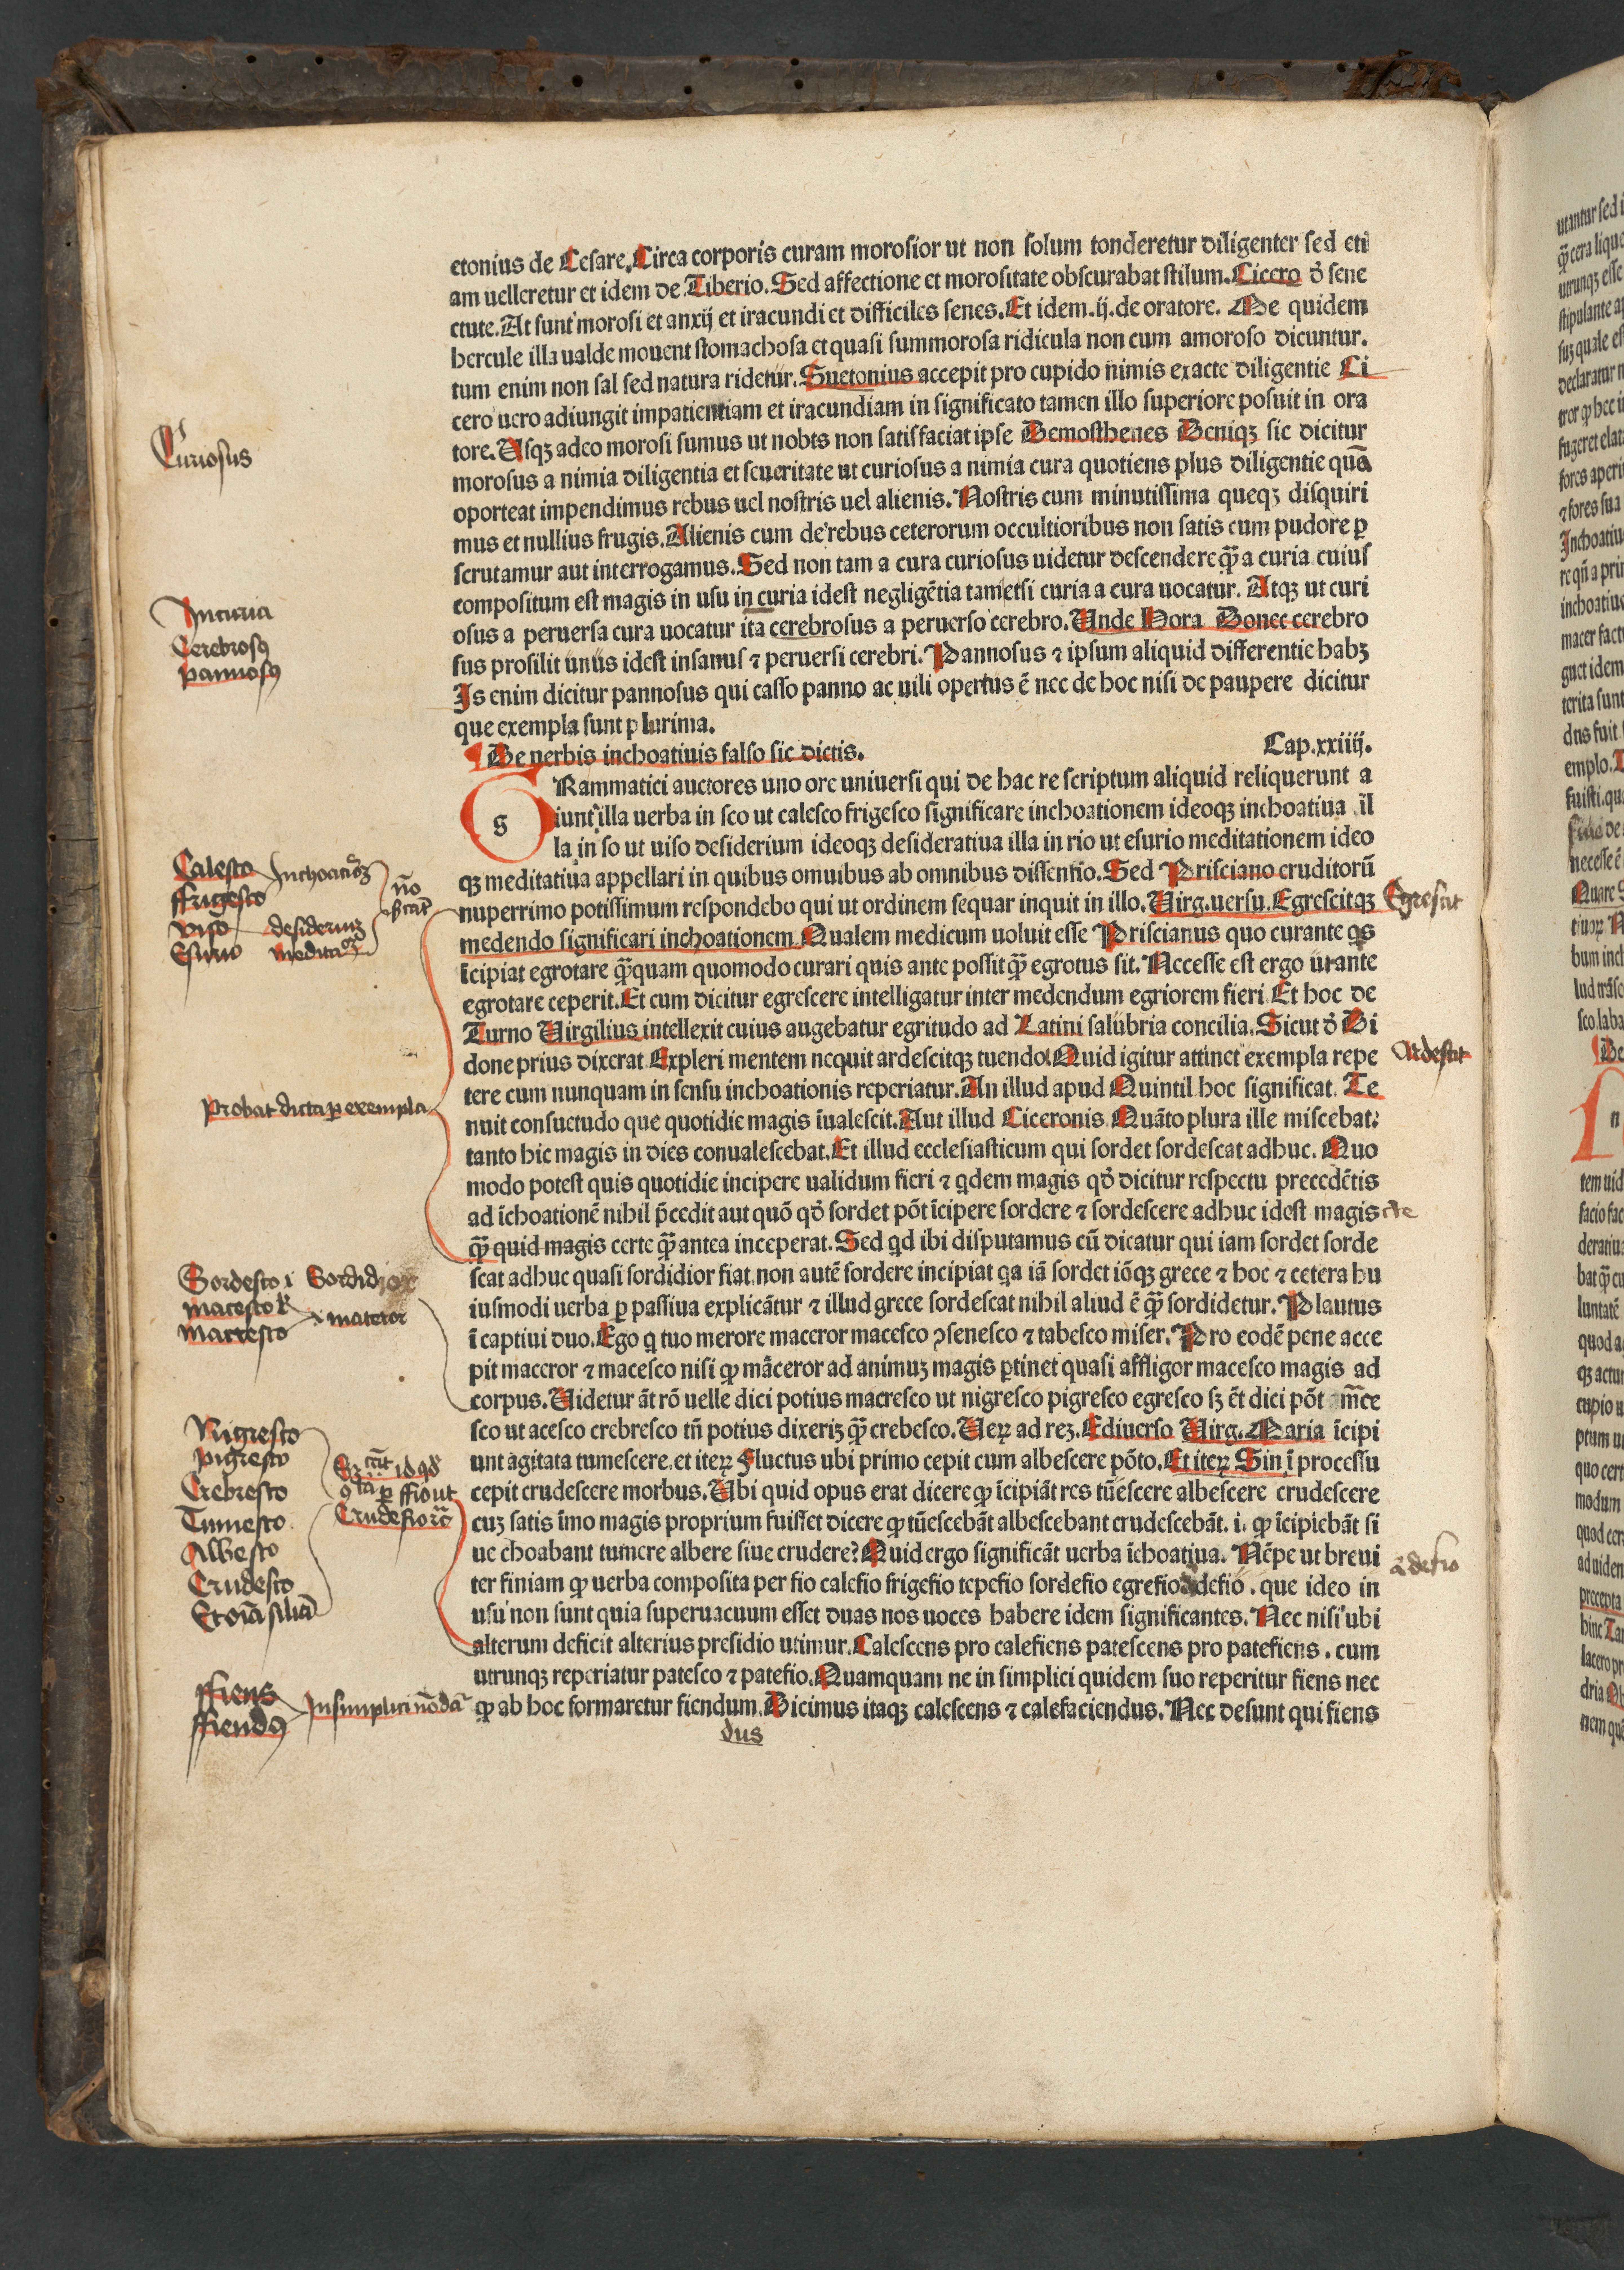 etonius de Cesare. Circa corporis curam morosior ut non solum tonderetur diligenter sed eti
am uelleretur et idem de Tiberio. Sed affectione et morositate obscurabat stilum. Cicero d̄ sene
ctute. At sunt morosi et anxij et iracundi et difficiles senes. Et idem .ij. de oratore. Me quidem
hercule illa ualde mouent stomachosa et quasi summorosa ridicula non cum amoroso dicuntur.
tum enim non sal sed natura ridetur. Suetonius accepit pro cupido nimis exacte diligentie Ci
cero uero adiungit impatientiam et iracundiam in significato tamen illo superiore posuit in ora
tore. Usqꝫ adeo morosi sumus ut nobis non satisfaciat ipse Demosthenes Deniqꝫ sic dicitur
morosus a nimia diligentia et seueritate ut curiosus a nimia cura quotiens plus diligentie quā
oporteat impendimus rebus uel nostris uel alienis. Nostris cum minutissima queqꝫ disquiri
mus et nullius frugis. Alienis cum de rebus ceterorum occultioribus non satis cum pudore ꝑ
scrutamur aut interrogamus. Sed non tam a cura curiosus uidetur descendere qꝫ̄ a curia cuius
compositum est magis in usu in curia idest negligētia tametsi curia a cura uocatur. Atqꝫ ut curi
osus a peruersa cura uocatur ita cerebrosus a peruerso cerebro. Unde Hora Donec cerebro
sus prosilit unus idest insanus ⁊ peruersi cerebri. Pannosus ⁊ ipsum aliquid differentie habꝫ
Is enim dicitur pannosus qui casso panno ac uili opertus ē nec de hoc nisi de paupere dicitur
que exempla sunt plurima.
De uerbis inchoatiuis falso sic dictis. Cap. xxiiij.
g Rammatici auctores uno ore uniuersi qui de hac re scriptum aliquid reliquerunt a
iunt illa uerba in sco ut calesco frigesco significare inchoationem ideoqꝫ inchoatiua il
la in so ut uiso desiderium ideoqꝫ desideratiua illa in rio ut esurio meditationem ideo
qꝫ meditatiua appellari in quibus omuibus ab omnibus dissentio. Sed Prisciano eruditorū
nuperrimo potissimum respondebo qui ut ordinem sequar inquit in illo. Uirg. uersu. Egrescitqꝫ
medendo significari inchoationem Qualem medicum uoluit esse Priscianus quo curante qs
īcipiat egrotare qꝫ̄quam quomodo curari quis ante possit qꝫ̄ egrotus sit. Necesse est ergo ut ante
egrotare ceperit. Et cum dicitur egrescere intelligatur inter medendum egriorem fieri Et hoc de
Turno Uirgilius intellexit cuius augebatur egritudo ad Latini salubria concilia. Sicut d̄ Di
done prius dixerat Expleri mentem nequit ardescitqꝫ tuendo. Quid igitur attinet exempla repe
tere cum nunquam in sensu inchoationis reperiatur. An illud apud Quintil hoc significat. Te
nuit consuetudo que quotidie magis īualescit. Aut illud Ciceronis Quāto plura ille miscebat:
tanto hic magis in dies conualescebat. Et illud ecclesiasticum qui sordet sordescat adhuc. Quo
modo potest quis quotidie incipere ualidum fieri ⁊ qdem magis qd̄ dicitur respectu precedētis
ad īchoationē nihil p̄cedit aut quō qd̄ sordet pōt īcipere sordere ⁊ sordescere adhuc idest magis
qꝫ̄ quid magis certe qꝫ̄ antea inceperat. Sed qd ibi disputamus cū dicatur qui iam sordet sorde
scat adhuc quasi sordidior fiat non autē sordere incipiat qa iā sordet iōqꝫ grece ⁊ hoc ⁊ cetera hu
iusmodi uerba ꝑ passiua explicātur ⁊ illud grece sordescat nihil aliud ē qꝫ̄ sordidetur. Plautus
ī captiui duo. Ego q tuo merore maceror macesco ꝯsenesco ⁊ tabesco miser. Pro eodē pene acce
pit maceror ⁊ macesco nisi ꝙ māceror ad animuꝫ magis ꝑtinet quasi affligor macesco magis ad
corpus. Uidetur āt rō uelle dici potius macresco ut nigresco pigresco egresco sꝫ ēt dici pōt m̄ce
sco ut acesco crebresco tn̄ potius dixeriꝫ qꝫ̄ crebesco. Ueꝝ ad reꝫ. Ediuerso Uirg. Maria īcipi
unt agitata tumescere. et iteꝝ Fluctus ubi primo cepit cum albescere pōto. Et iteꝝ Sin ī processu
cepit crudescere morbus. Ubi quid opus erat dicere ꝙ īcipiāt res tūescere albescere crudescere
cuꝫ satis īmo magis proprium fuisset dicere ꝙ tūescebāt albescebant crudescebāt. i. ꝙ īcipiebāt si
ue choabant tumere albere siue crudere? Quid ergo significāt uerba īchoatiua. Nēpe ut breui
ter finiam ꝙ uerba composita per fio calefio frigefio tepefio sordefio egrefio defio. que ideo in
usu non sunt quia superuacuum esset duas nos uoces habere idem significantes. Nec nisi ubi
alterum deficit alterius presidio utimur. Calescens pro calefiens patescens pro patefiens. cum
utrunqꝫ reperiatur patesco ⁊ patefio. Quamquam ne in simplici quidem suo reperitur fiens nec
ꝙ ab hoc formaretur fiendum. Dicimus itaqꝫ calescens ⁊ calefaciendus. Nec desunt qui fiens
dus
Curiosus
Incuria
Cerebrosꝰ
pannosꝰ
Calesco
ffrigesco
viso
Esurio
desideriuꝫ
Egrescit
Ardescit
Probat dicta ꝑ exempla
Sordesco
macesco
marcesco
Nigresco
pigresco
Crebresco
Tumesco
Albesco
Crudesco
ffiens
ffiendꝰ